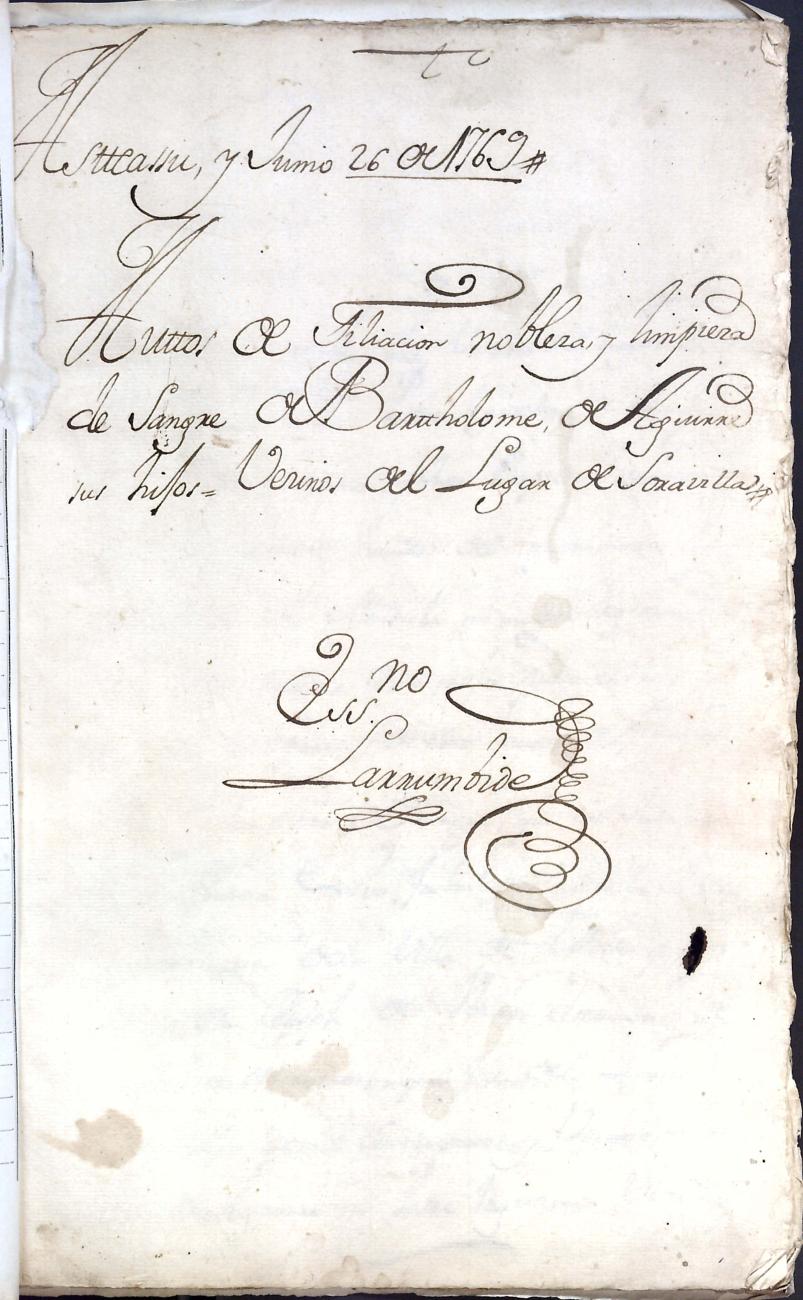 Astteassu, y Junio 26 de 1769#
Auttos de Filiacion nobleza, y limpieza
de Sangre de Barttholome, de Aguirre
sus hijos= Vezinos del Lugar de Soravilla#
no
Ess.
Larrumbide